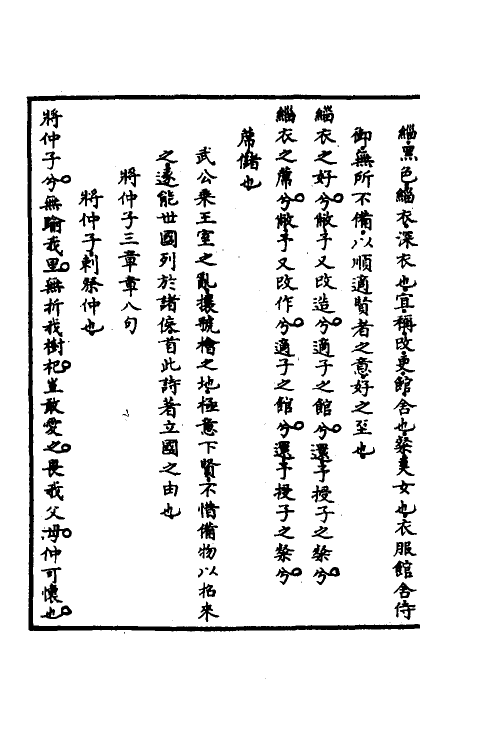 緇黑色緇衣深衣也宜稱改更館舍也粲美女也衣服館舍侍
御無所不備以順適賢者之意好之至也
緇衣之好兮敝予又改造兮適子之館兮還予授子之粲兮
緇衣之蓆兮敝予又改作兮適子之館兮還予授子之粲兮
蓆儲也
武公乘王室之亂攘虢檜之地極意下賢不惜備物以招來
之遂能世國列於諸侯首此詩著立國之由也
將仲子三章章八句
將仲子刺祭仲也
將仲子兮無踰我里無折我樹杞豈敢愛之畏我父母仲可懷也